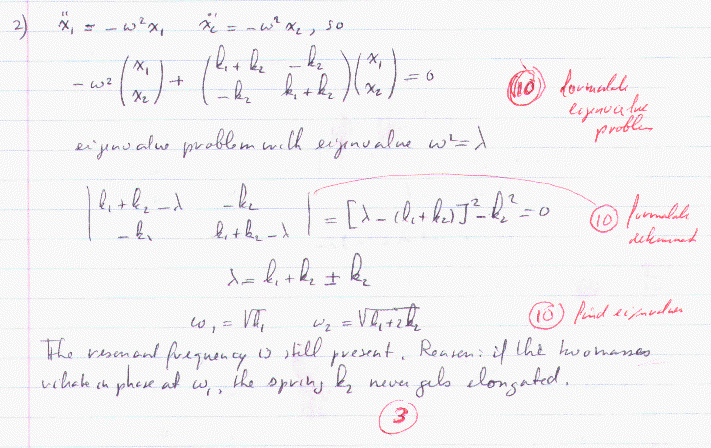 2) ẍ₁ = -ω²x₁   ẍ₂ = -ω²x₂, so
-ω² (x₁ x₂) + (k₁+k₂ -k₂ -k₂ k₁+k₂)(x₁ x₂) = 0
(10) formulate
eigenvalue
problem
eigenvalue problem with eigenvalue ω² = λ
|k₁+k₂-λ -k₂ -k₂ k₁+k₂-λ| = [λ-(k₁+k₂)]² - k₂² = 0
(10) formulate
determinant
λ = k₁+k₂ ± k₂
ω₁ = √k₁   ω₂ = √k₁+2k₂
(10) find eigenvalues
The resonant frequency is still present. Reason: if the two masses
vibrate in phase at ω₁, the spring k₂ never gets elongated.
(3)